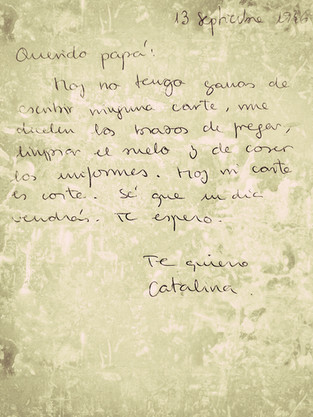 13 septiembre
Querido papá:
Hoy no tengo ganas de
escribir ninguna carta, me
duelen los brazos de fregar,
limpiar el suelo y de coser
los uniformes. Hoy mi carta
es corta. Sé que un día
vendrás. Te espero.
Te quiero
Catalina.